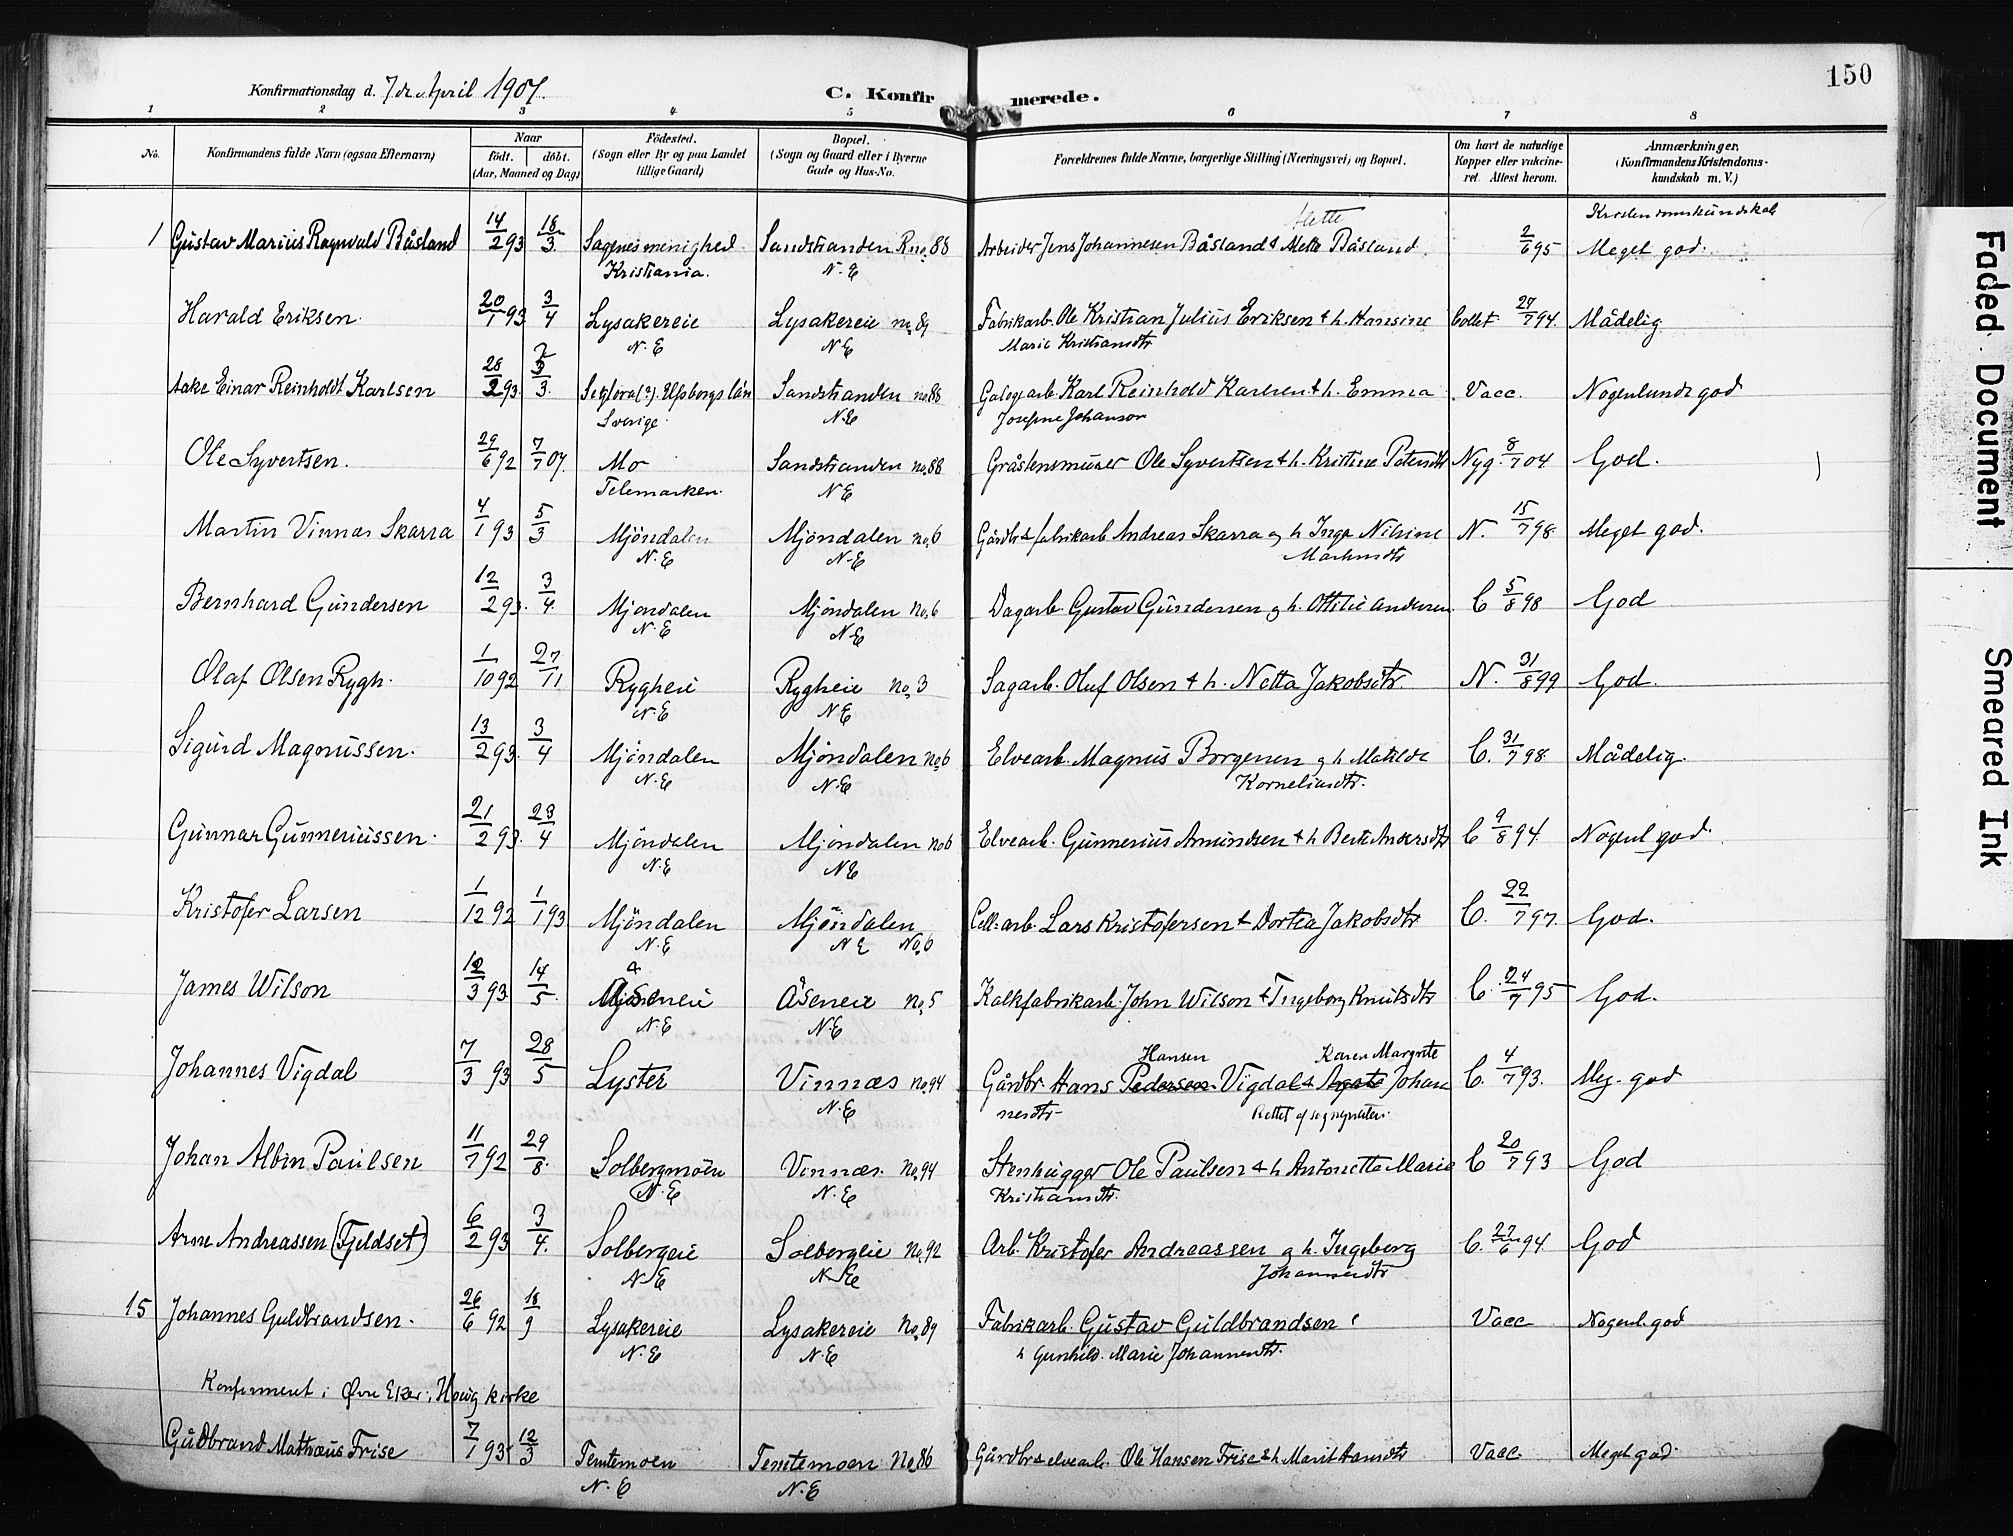 150
Konfirmationsdag d. 7de April 1907.
C. Konfirmerede.
1 2 3 4 5 6 7 8
No. Konfirmandens fulde Navn (ogsaa Efternavn) Naar født. døbt. (Aar, Maaned og Dag) Fødested. (Sogn eller By og paa Landet tillige Gaard) Bopæl. (Sogn og Gaard eller i Byerne Gade og Hus-No. Forældrenes fulde Navne, borgerlige Stilling (Næringsvei) og Bopæl. Om havt de naturlige Kopper eller vakcineret. Attest herom. Anmærkninger. (Konfirmandens Kristendomskundskab m. V.)
Kristendomskundskab
1 Gustav Marius Ragnvald Båsland 14/2 93 18/3 Sagenes menighed Sandstranden R no. 88 Arbeider Jens Johannesen Båsland & Mette Båsland 2/6 95 Meget god.
Kristiania. N.E
Harald Eriksen 20/1 93 3/4 Lysakereie Lysakereie no. 89 Fabrikarb. Ole Kristian Julius Eriksen & h. Hansine Collet 27/7 94. Mådelig
N.E N.E Marie Kristiansdtr
Aake Einar Reinholdt Karlsen 28/2 93. 3/3. Sexlora(?). Elfsborgs län Sandstranden no. 88 Galogearb. Karl Reinhold Karlsen & h. Emma Vacc. Nogenlunde god
Sverige N.E Josefine Johanson
Ole Syvertsen. 29/6 92 7/7 07. Mo Sandstranden no. 88 Gråstensmurer Ole Syvertsen & h. Kristine Petersdtr Nyg. 8/7 04 God.
Telemarken. N.E
Martin Vinnæs Skarra 4/1 93 5/3 Mjöndalen Mjöndalen no. 6 Gårdbr & fabrikarb Andreas Skarra og h Inga Nilsine N. 15/7 98 Meget god.
N.E N.E
Bernhard Gundersen 12/2 93. 3/4. Mjöndalen Mjöndalen no. 6 Dagarb. Gustav Gundersen og h. Ottilie Andersen C 5/8 98 God
N.E N.E
Olaf Olsen Rygh. 1/10 92 27/11 Rygheie Rygheie no. 3 Sagarb. Oluf Olsen & h. Netta Jakobsdtr. N. 31/8 99 God.
N.E N.E
Sigurd Magnussen. 13/2 93. 3/4 Mjöndalen Mjöndalen no 6 Elvearb. Magnus Borgersen og h Matilde C. 31/7 98 Mådelig.
N.E N.E Korneliusdtr.
Gunnar Gunneriussen. 21/2 93. 23/4 Mjöndalen Mjöndalen no 6 Elvearb. Gunnerius Amundsen & h Berte Andersdtr C 9/8 94 Nogenl god.
N.E N.E
Kristofer Larsen 1/12 92 1/1 93 Mjöndalen Mjöndalen Cell-arb. Lars Kristofersen & Dortea Jakobsdtr C. 22/7 97. God.
N.E N E No. 6
James Wilson 12/3 93 14/5. Åseneie Åseneie no. 5 Kalkfabrikarb. John Wilson & Ingeborg Knutsdtr C. 24/7 95 God.
N.E N.E
Hansen Karen Margrete
Johannes Vigdal 7/3 93 28/5 Lyster Vinnæs no. 94 Gårdbr. Hans Pedersen Vigdal & Agate Johan C. 4/7 93. Meg. god
N.E nesdtr
Johan Albin Paulsen 11/7 92 29/8. Solbergmoen Vinnæs. no. 94 Stenhugger Ole Paulsen & h Antonette Marie C 20/7 93 God
N.E N.E Kristiansdtr.
Arne Andreassen (Fjeldset) 6/2 93 3/4. Solbergeie Solbergeie no. 92 Arb. Kristofer Andreassen og h. Ingeborg C. 27/6 94 God
N.E N.E Johannesdtr
15 Johannes Guldbrandsen. 26/6 92 18/9 Lysakereie Lysakereie no. 89 Fabrikarb. Gustav Guldbrandsen & Vacc Nogenl. god
N.E N.E h Gunhild Marie Johannesdtr.
Konfirmeret i Øvre Eker, Houg kirke
Gudbrand Mathæus Frise 7/1 93 12/3 Temtemoen Temtemoen No. 86 Gårdbr & elvearb. Ole Hansen Frise & h Marit Hansdtr Vacc. Meget god.
N.E N.E
Faded Document
Smeared Ink